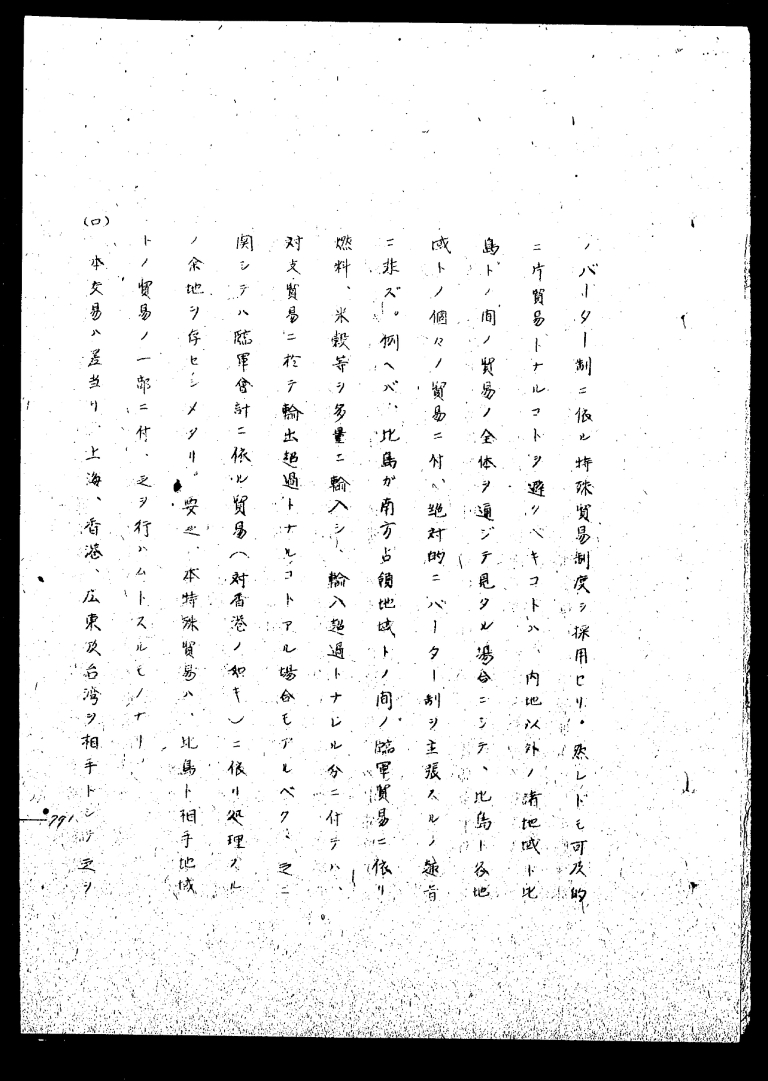 ノバーター制ニ依ル特殊貿易制度ヲ採用セリ。然レドモ可及的
ニ片貿易トナルコトヲ避クベキコトハ、内地以外ノ諸地域ト比
島トノ間ノ貿易ノ全体ヲ通ジテ見タル場合ニシテ、比島ト各地
域トノ個々ノ貿易ニ付、絶対的ニバーター制ヲ主張スルノ趣旨
ニ非ズ。例ヘバ、比島ガ南方占領地域トノ間ノ臨軍貿易ニ依リ
燃料、米穀等ヲ多量ニ輸入シ、輸入超過トナレル分ニ付テハ、
対支貿易ニ於テ輸出超過トナルコトアル場合モアルベク、之ニ
関シテハ臨軍會計ニ依ル貿易(対香港ノ如キ)ニ依リ処理スル
ノ余地ヲ存セシメタリ。要之、本特殊貿易ハ、比島ト相手地域
トノ貿易ノ一部ニ付、之ヲ行ハムトスルモノナリ。
(ロ) 本交易ハ差当リ、上海、香港、広東及台湾ヲ相手トシテ之ヲ
791